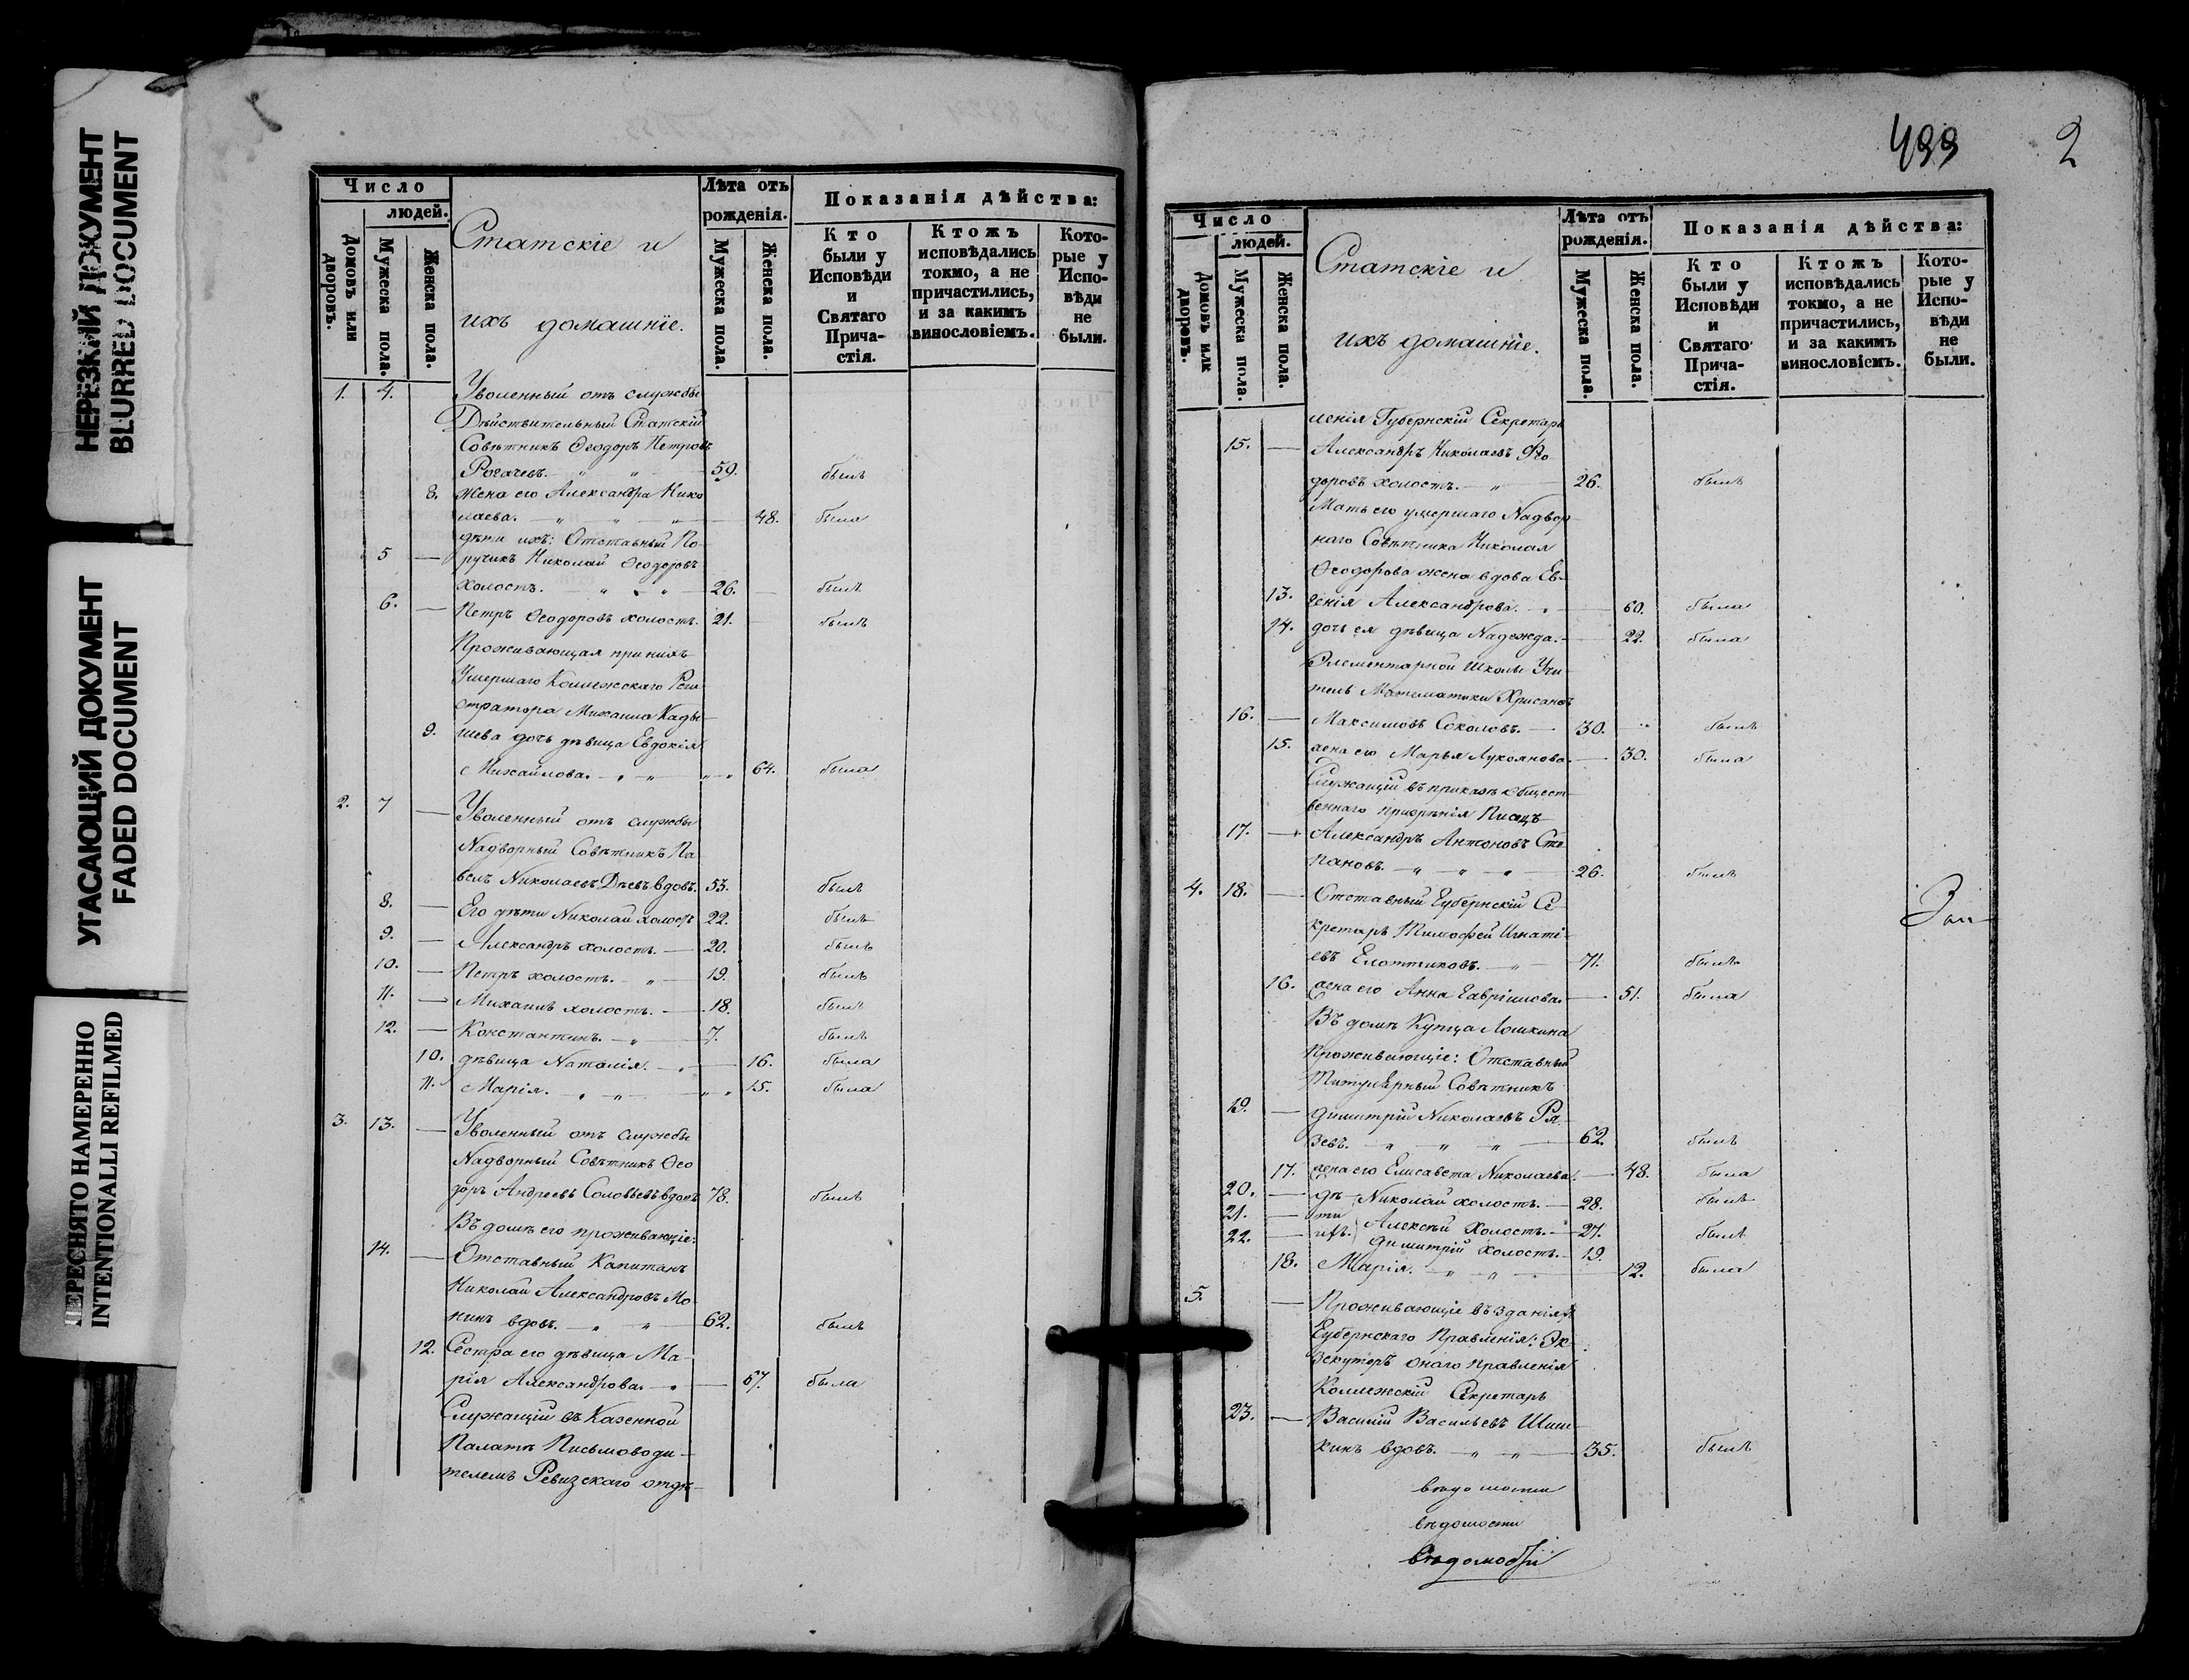 НЕРЕЗКИЙ ДОКУМЕНТ
BLURRED DOCUMENT
УГАСАЮЩИЙ ДОКУМЕНТ
FADED DOCUMENT
ПЕРЕСНЯТО НАМЕРЕННО
INTENTIONALLI REFILMED
Число
людей.
Домовъ или дворовъ.
Мужеска пола.
Женска пола.
Статскіе и
ихъ домашніе.
Лѣта отъ
рожденія.
Мужеска пола.
Женска пола.
Показанія дѣйства:
Кто
были у
Исповѣди
и
Святаго
Прича-
стія.
Ктожъ
исповѣдались
токмо, а не
причастились,
и за какимъ
винословіемъ.
Кото-
рые у
Испо-
вѣди
не
были.
1. 4. Уволенный отъ службы
Дѣйствительный Статскій
Совѣтникъ Ѳеодоръ Петровъ
Рогачевъ. 59. былъ
8. Жена его Александра Нико
лаева. 48. была
дѣти ихъ: Отставный По-
5 ручикъ Николай Ѳеодоровъ
холостъ. 26. былъ
6. Петръ Ѳеодоровъ холостъ. 21. былъ
Проживающая при нихъ
Умершаго Коллежскаго Реги
стратора Михаила Кады-
9. шева дочь дѣвица Евдокія
Михайлова. 64. была
2. 7 Уволенный отъ службы
Надворный Совѣтникъ Па
велъ Николаевъ вдовъ. 53. былъ
8. Его дѣти Николай холостъ 22. былъ
9. Александръ холостъ. 20. былъ
10. Петръ холостъ. 19. былъ
11. Михаилъ холостъ. 18. былъ
12. Константинъ. 7. былъ
10. дѣвица Наталія. 16. была
11. Марія. 15. была
3. 13. Уволенный отъ службы
Надворный Совѣтникъ Ѳео
доръ Андреевъ Соловьевъ вдовъ 78. былъ
Въ домѣ его проживающіе:
14. Отставный Капитанъ
Николай Александровъ Мо-
нинъ вдовъ. 62. былъ
12. Сестра его дѣвица Ма-
рія Александрова. 67. была
Служащій въ Казенной
Палатѣ Письмоводи-
телемъ Ревизскаго отдѣ-
499 2
Число
людей.
Домовъ или дворовъ.
Мужеска пола.
Женска пола.
Статскіе и
ихъ домашніе.
Лѣта отъ
рожденія.
Мужеска пола.
Женска пола.
Показанія дѣйства:
Кто
были у
Исповѣди
и
Святаго
Прича-
стія.
Ктожъ
исповѣдались
токмо, а не
причастились,
и за какимъ
винословіемъ.
Кото-
рые у
Испо-
вѣди
не
были.
ленія Губернскій Секретарь
15. Александръ Николаевъ Ѳео
доровъ холостъ. 26. былъ
Мать его умершаго Надвор-
наго Совѣтника Николая
Ѳеодорова жена вдова Ев-
13. генія Александрова. 60. была
14. дочь ея дѣвица Надежда. 22. была
Элементарной школы Учи-
тель Математики Хрисанѳъ
16. Максимовъ Соколовъ. 30. былъ
15. жена его Марья Лукоянова. 30. была
Служащій въ приказѣ общест-
веннаго призрѣнія Писецъ
17. Александръ Антоновъ Сте
пановъ. 26. былъ
4. 18. Отставный Губернскій Се-
кретарь Тимофей Игнаті-
евъ 71. былъ
16. жена его Анна Гавріилова. 51. была
Въ домѣ Купца Ломкина
проживающіе: Отставный
Титулярный Совѣтникъ
19. Димитрій Николаевъ Ря-
зевъ. 62. былъ
17. жена его Елисавета Николаева. 48. была
20. дѣ- Николай холостъ. 28. былъ
21. ти Алексѣй Холостъ. 27. былъ
22. ихъ. Димитрій холостъ. 19.
18. Марія. 12. была
5. Проживающіе въ зданіяхъ
Губернскаго Правленія: Эк-
зекуторъ онаго правленія
Коллежскій Секретарь
23. Василій Васильевъ Шиш-
кинъ вдовъ. 35. былъ
ведомости
вѣдомости
Вѣдомости